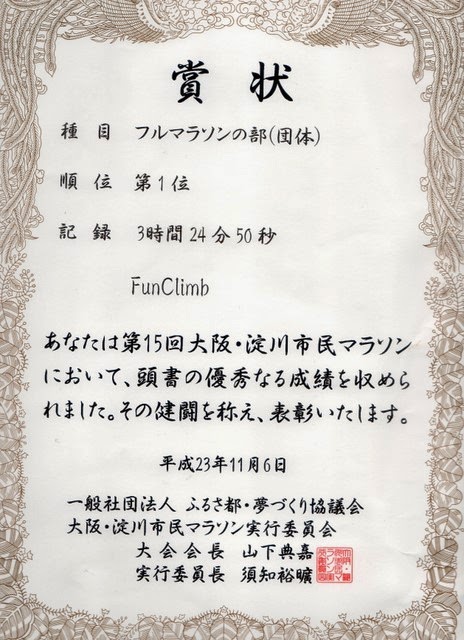 賞状
種目 フルマラソンの部(団体)
順位 第1位
記録 3時間24分50秒
FunClimb
あなたは第15回大阪・淀川市民マラソン
において、頭書の優秀なる成績を収めら
れました。その健闘を称え、表彰いたします。
平成23年11月6日
一般社団法人 ふるさ都・夢づくり協議会
大阪・淀川市民マラソン実行委員会
大会会長 山下典嘉
実行委員長 須知裕曠